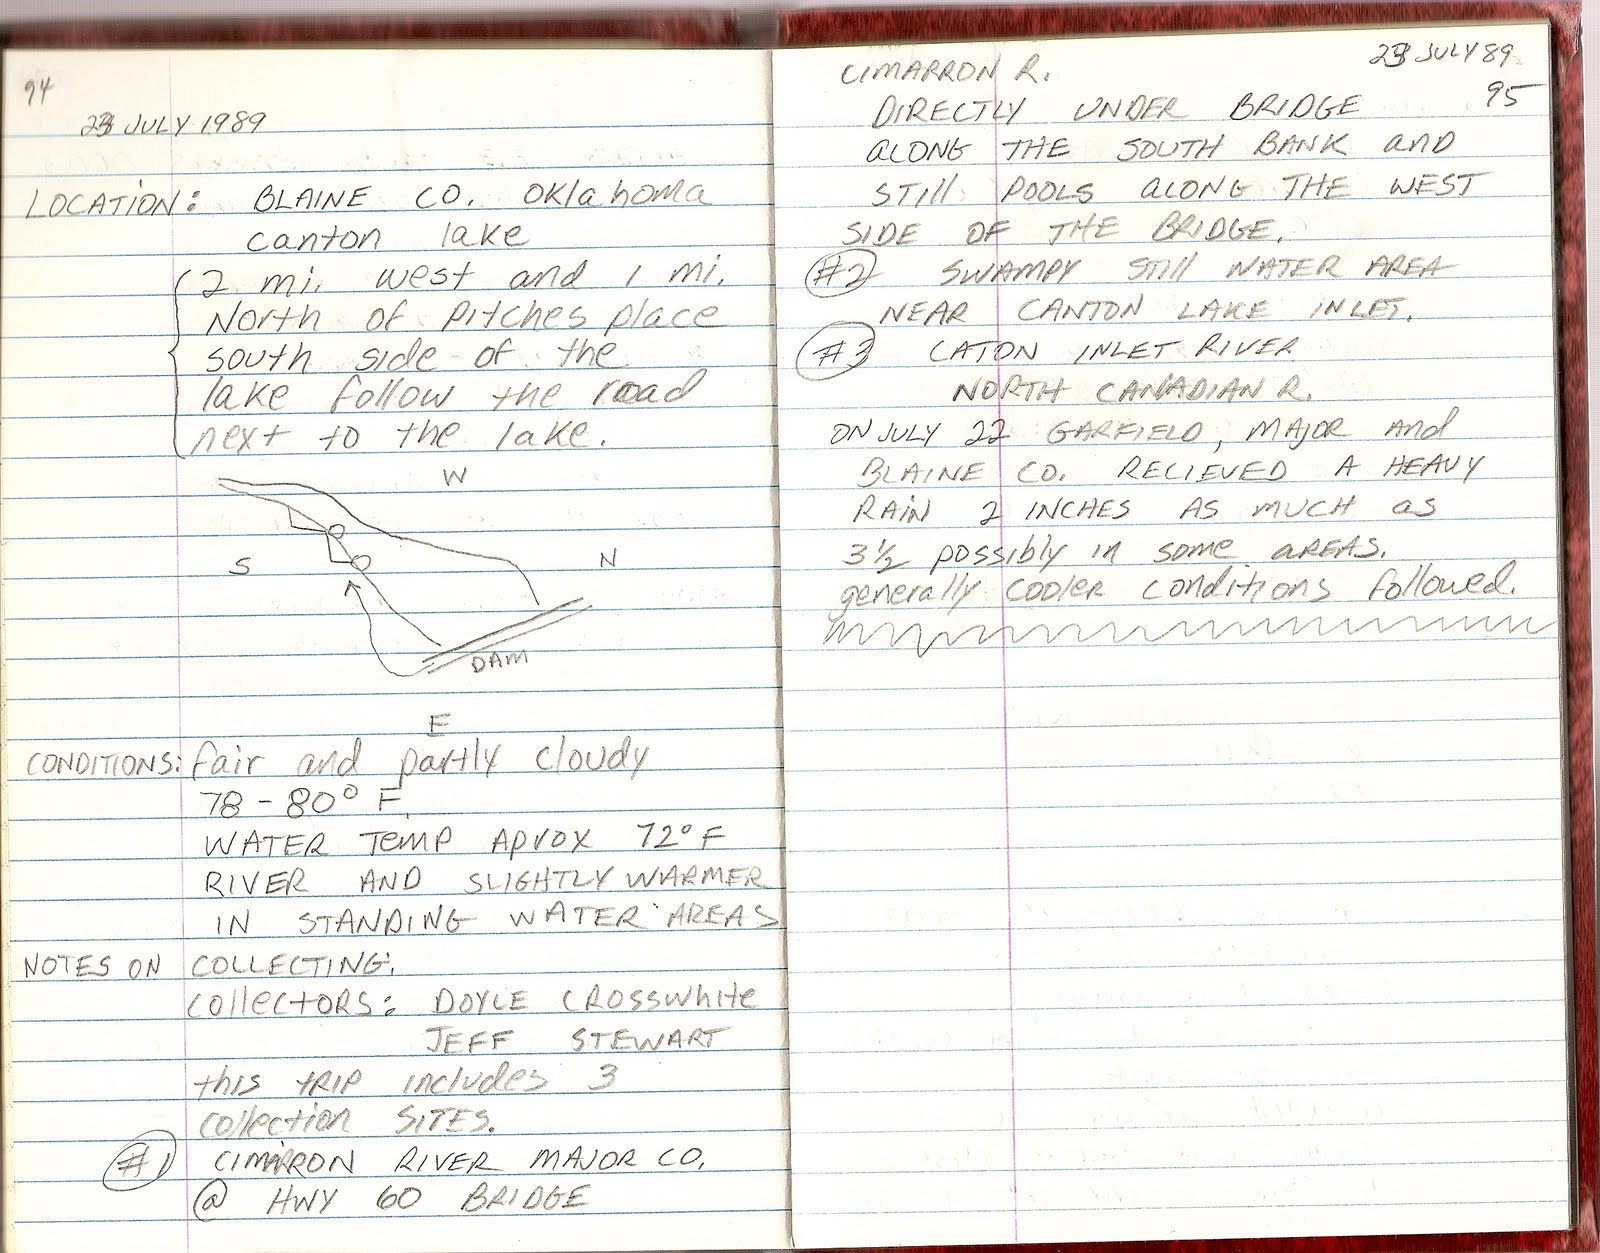 94
23 JULY 1989
LOCATION: BLAINE CO. OKlahoma
canton lake
2 mi. west and 1 mi.
North of Pitches place
south side of the
lake follow the road
next to the lake.
W
S
N
DAM
E
CONDITIONS: fair and partly cloudy
78-80° F.
WATER TEMP APROX 72° F
RIVER AND SLIGHTLY WARMER
IN STANDING WATER AREAS
NOTES ON COLLECTING:
COLLECTORS: DOYLE CROSSWHITE
JEFF STEWART
this TRIP includes 3
collection SITES.
#1 CIMARRON RIVER MAJOR CO.
@ HWY 60 BRIDGE
23 JULY 89
95
CIMARRON R.
DIRECTLY UNDER BRIDGE
ALONG THE SOUTH BANK AND
STILL POOLS ALONG THE WEST
SIDE OF THE BRIDGE.
#2 SWAMPY STILL WATER AREA
NEAR CANTON LAKE INLET.
#3 CATON INLET RIVER
NORTH CANADIAN R.
ON JULY 22 GARFIELD, MAJOR and
BLAINE CO. RELIEVED A HEAVY
RAIN 2 INCHES AS MUCH as
3½ possibly in some AREAS.
generally cooler conditions followed.